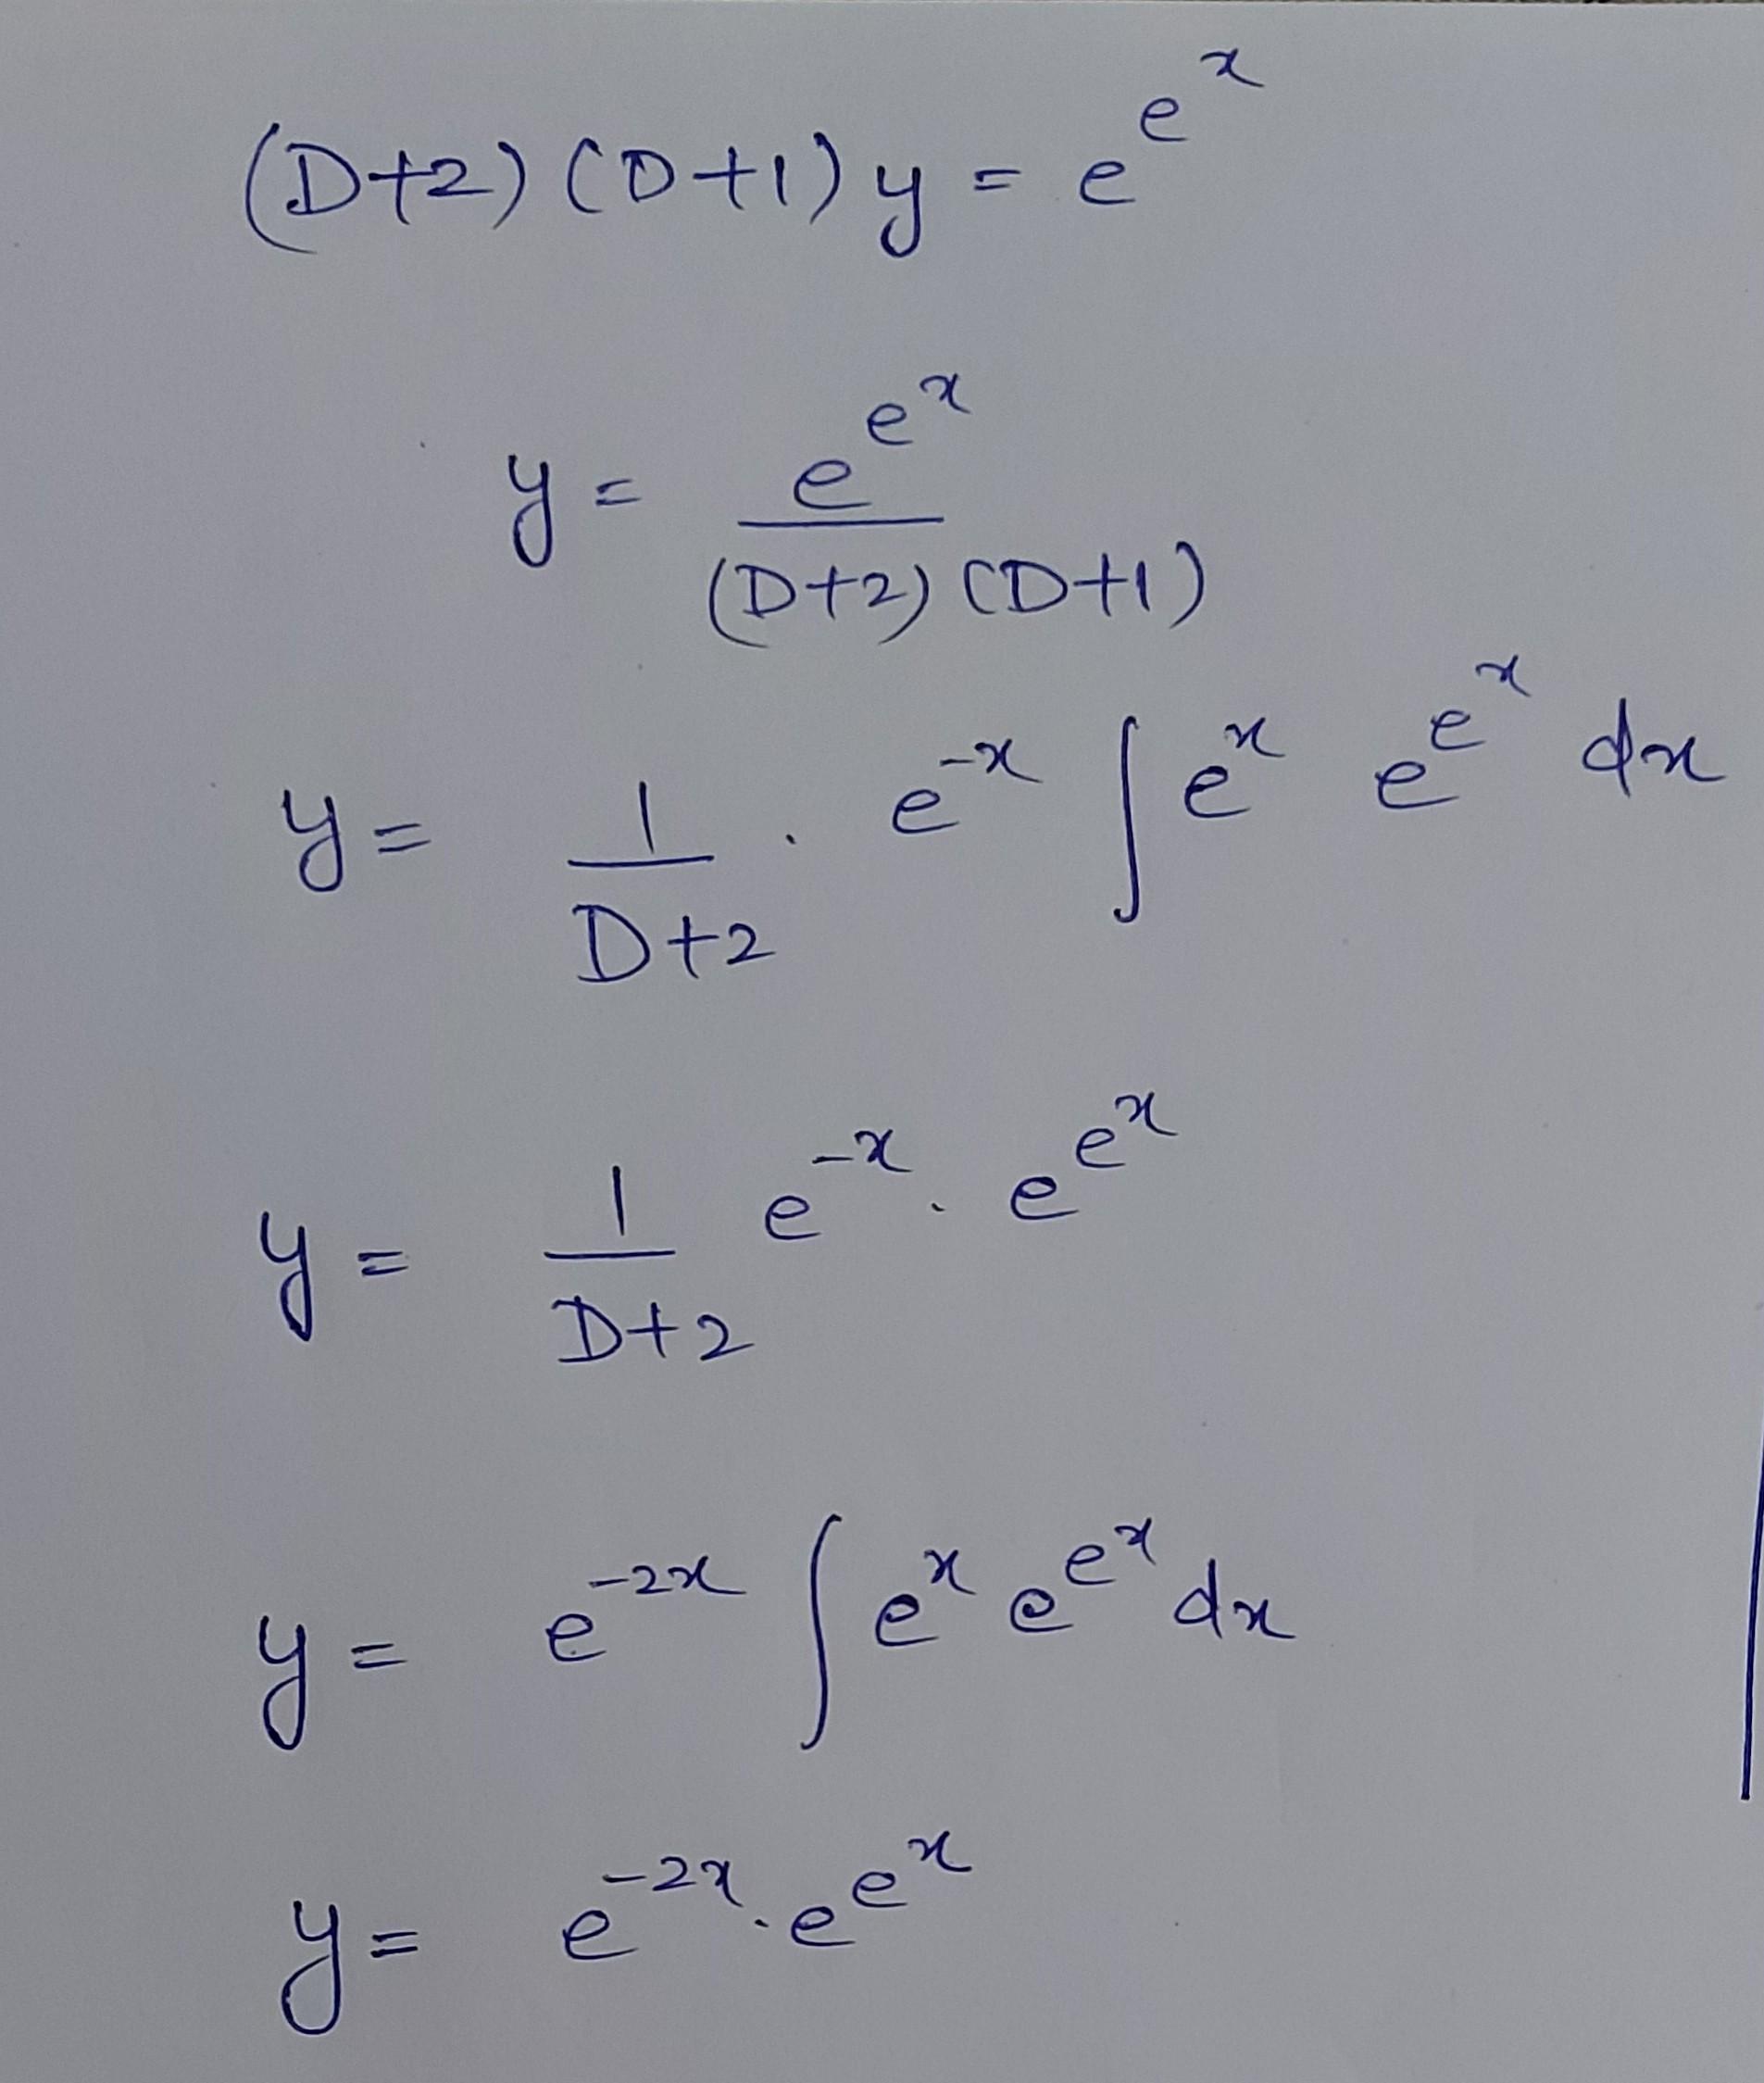 (D+2)(D+1)y = e^{e^x}
y = \frac{e^{e^x}}{(D+2)(D+1)}
y = \frac{1}{D+2} . e^{-x} ∫ e^x e^{e^x} dx
y = \frac{1}{D+2} e^{-x} . e^{e^x}
y = e^{-2x} ∫ e^x e^{e^x} dx
y = e^{-2x} . e^{e^x}